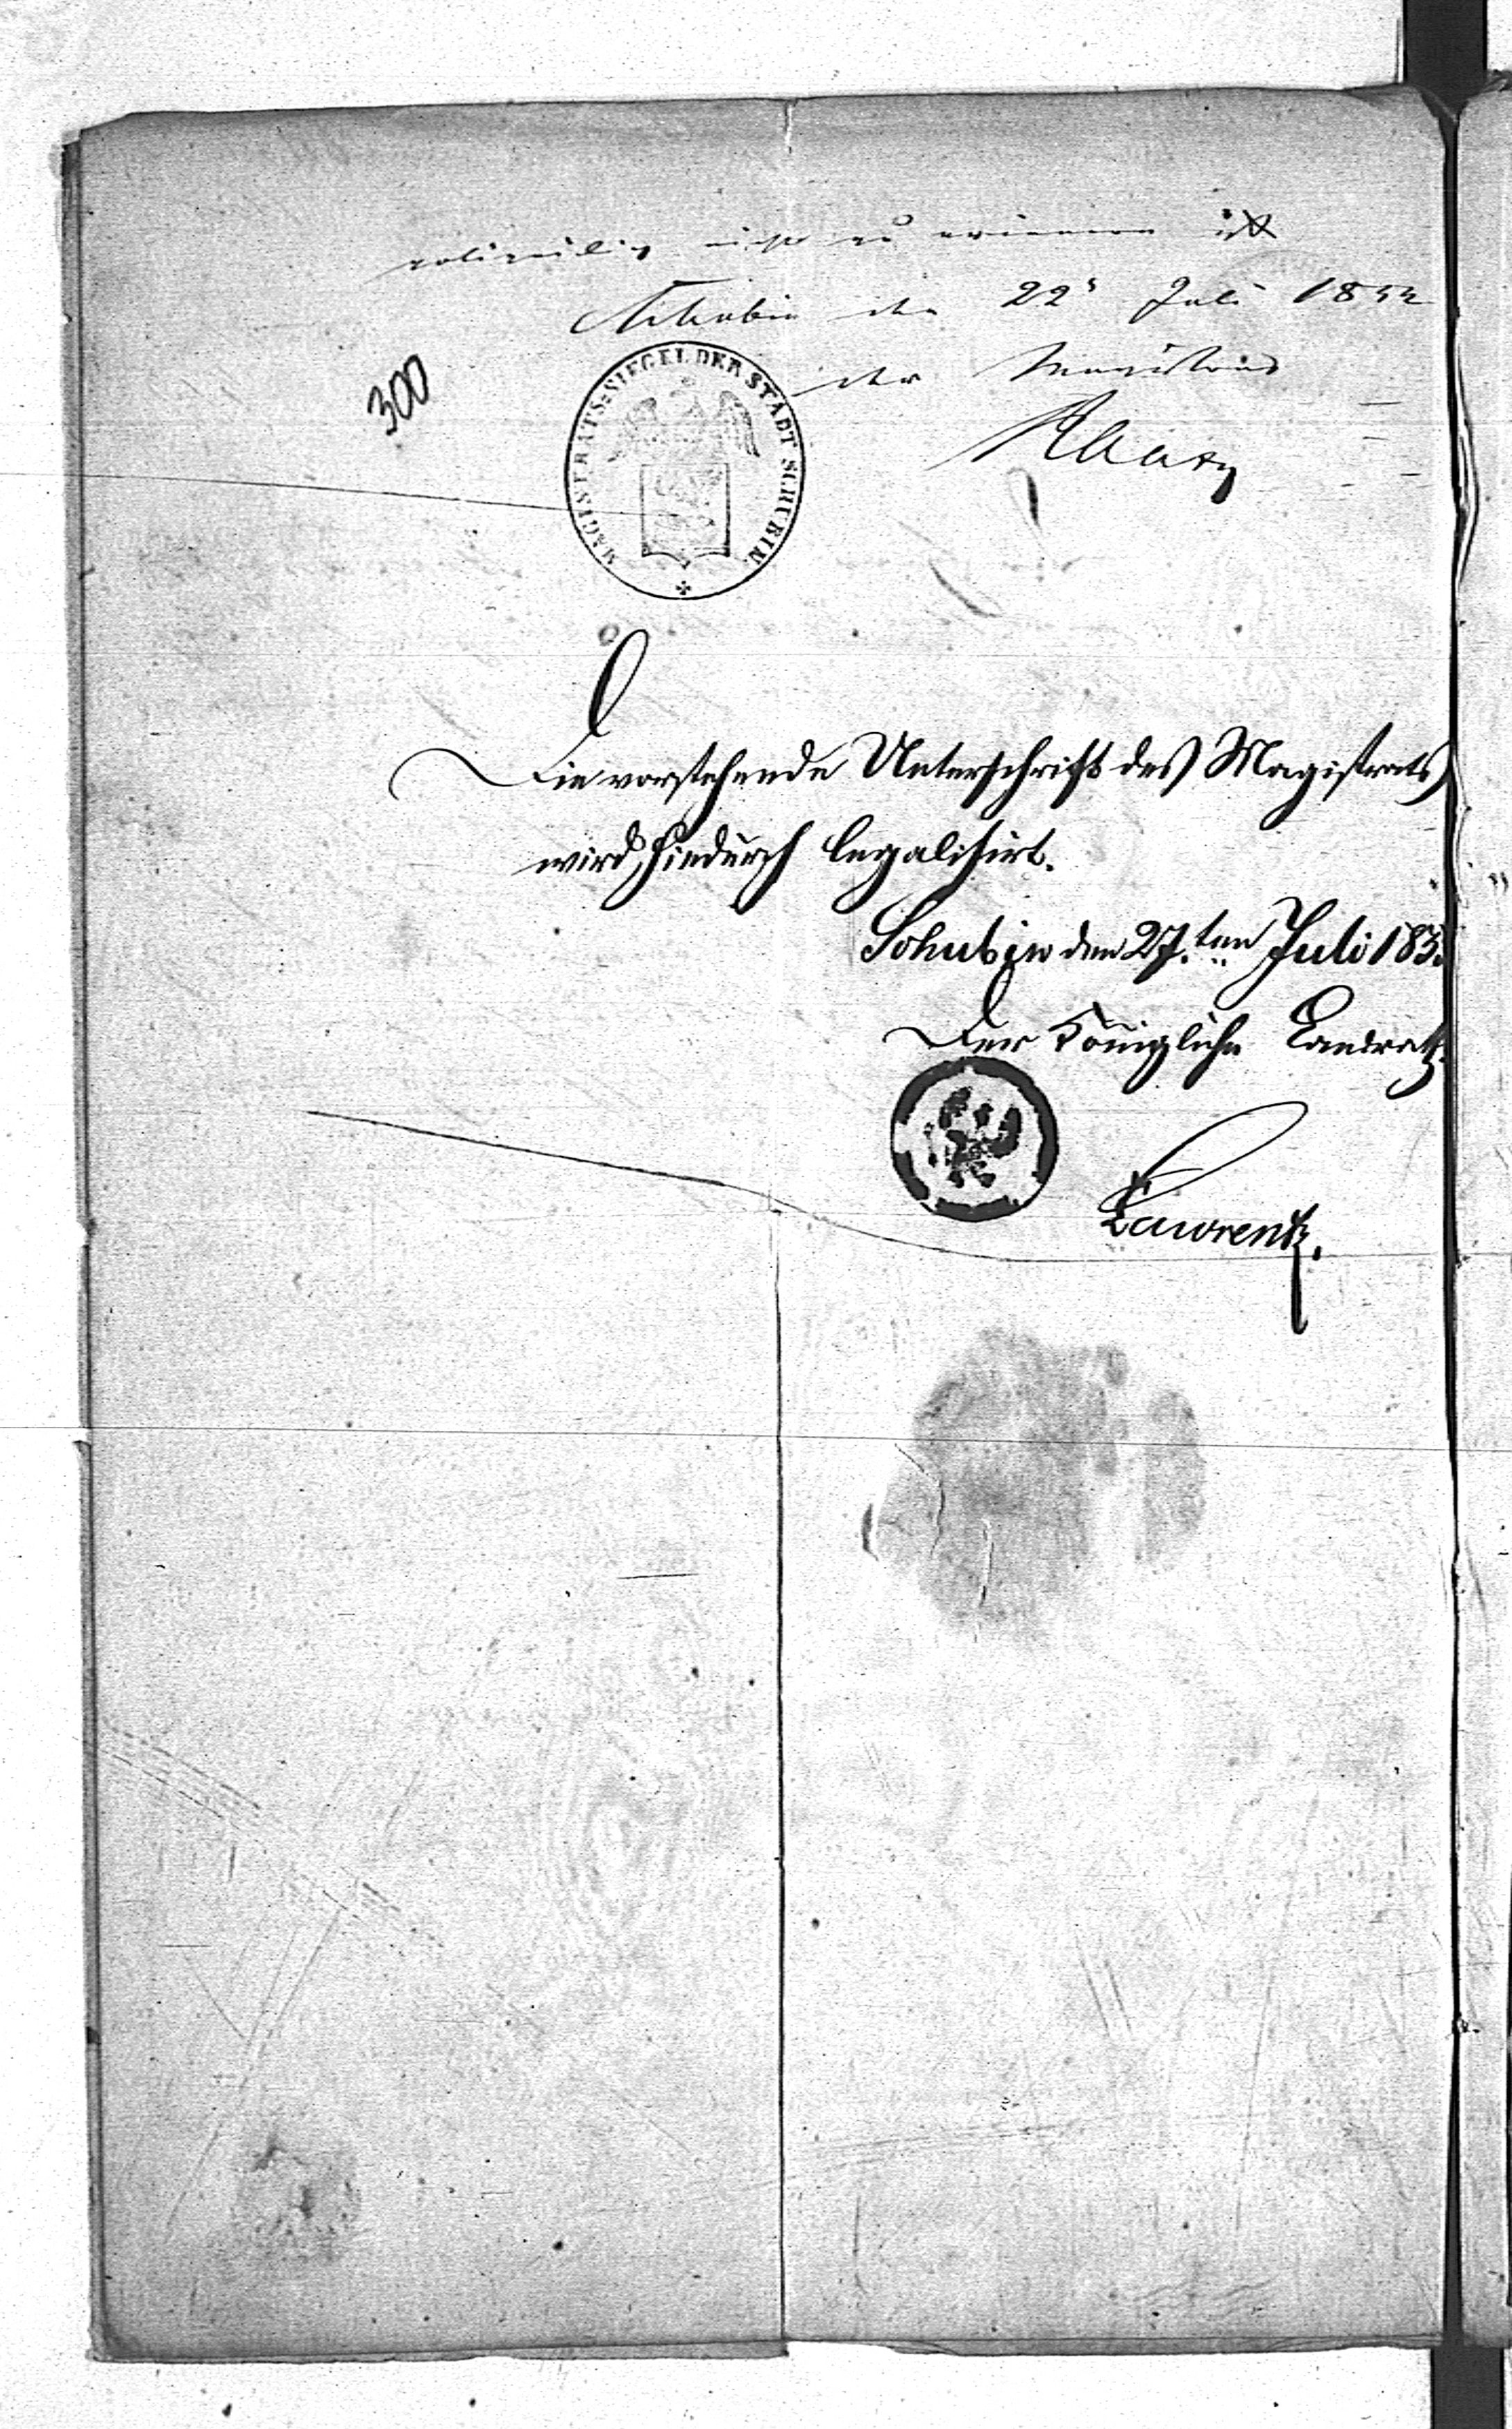 polizeilich nicht zu erinnern ist
Schubin den 22t Juli 1833
der Magistrat
300
MAGISTRATS-SIEGEL DER STADT SCHUBIN
Die vorstehende Unterschrift des Magistrats
wird hiedurch legalisirt.
Schubin den 27.ten Juli 183
Der Königliche Landrath
Lawrentz.